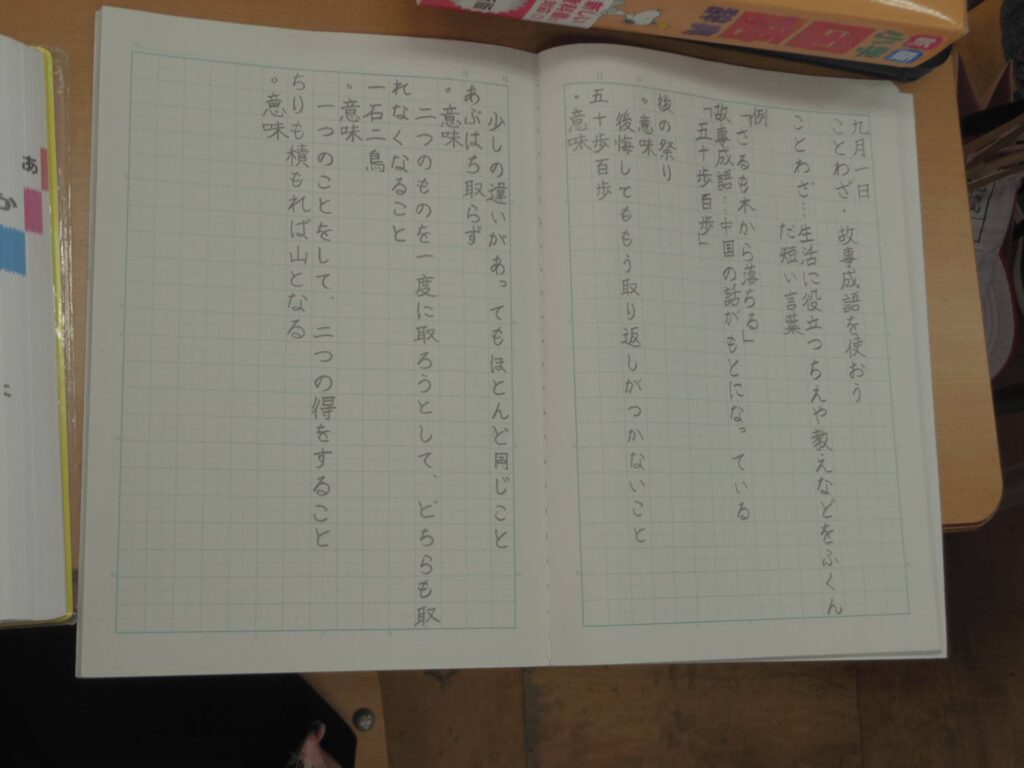 九月一日
ことわざ・故事成語を使おう
ことわざ…生活に役立つちえや教えなどをふくん
だ短い言葉
例
「さるも木から落ちる」
故事成語…中国の話がもとになっている
「五十歩百歩」
後の祭り
・意味
後悔してももう取り返しがつかないこと
五十歩百歩
・意味
少しの違いがあってもほとんど同じこと
あぶはち取らず
・意味
二つのものを一度に取ろうとして、どちらも取
れなくなること
一石二鳥
・意味
一つのことをして、二つの得をすること
ちりも積もれば山となる
・意味
あ
か
に